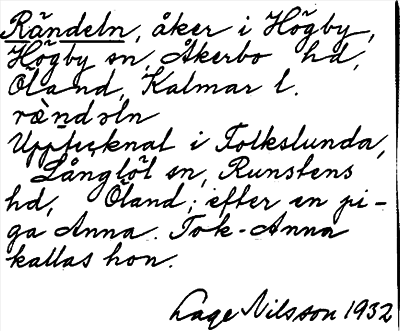 Rändeln, åker i Högby,
Högby sn, Åkerbo hd,
Öland, Kalmar l.
rèndəln
Upptecknat i Folkslunda,
Långlöt sn, Runstens
hd, Öland; efter en pi-
ga Anna. Tok-Anna
kallas hon.
Lage Nilsson 1932